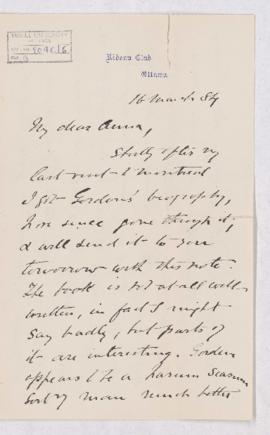 Rideau Club
Ottawa
16 March 84
My dear Anna,
Shortly after my
last visit to Montreal
I got Gordon's biography,
have since gone through it;
& will send it to you
tomorrow with this note.
The book is not at all well
written, in fact I might
say badly, but parts of
it are interesting. Gordon
appears to be a harum scarum
sort of man much better